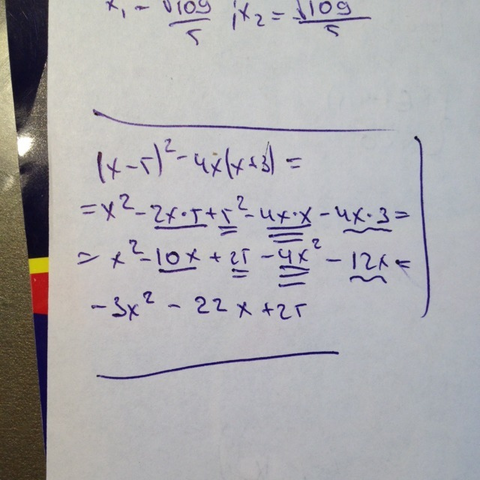 x₁ = √109/5 ; x₂ = √109/5
(x-5)² - 4x(x+3) =
= x² - 2x·5 + 5² - 4x·x - 4x·3 =
= x² - 10x + 25 - 4x² - 12x =
- 3x² - 22x + 25